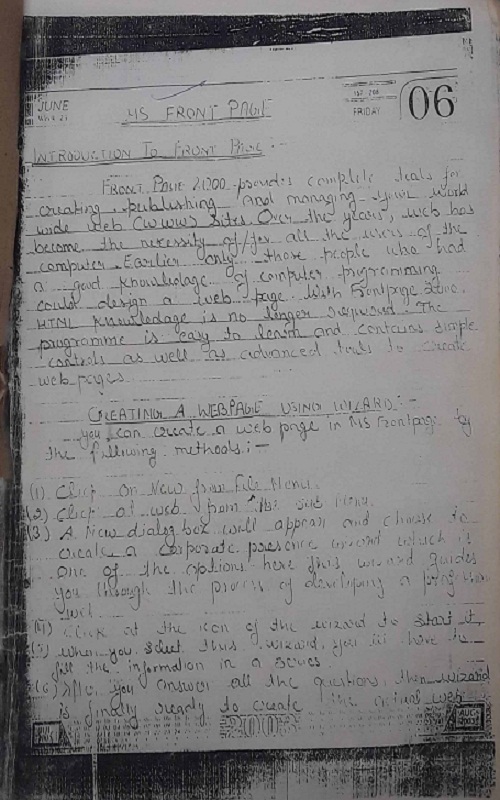 JUNE
06
FRIDAY
MS FRONT PAGE
INTRODUCTION TO FRONT PAGE :-
FRONT PAGE 2000 provides complete tools for
creating, publishing and managing your world
wide web (WWW) sites. Over the years, web has
become the necessity of/for all the users of the
computer. Earlier only those people who had
a good knowledge of computer programming
could design a web page. With Frontpage 2000,
HTML knowledge is no longer required. The
programme is easy to learn and contains simple
controls as well as advanced tools to create
web pages.
CREATING A WEBPAGE USING WIZARD:-
you can create a web page in MS Frontpage by
the following methods:-
(1) Click on New from File Menu.
(2) Click at web from the sub Menu.
(3) A New dialog box will appear and choose to
create a corporate presence wizard which is
one of the options here this wizard guides
you through the process of developing a
(4) Click at the icon of the wizard to start it.
(5) when you select this wizard, you have to
fill the information in a series
(6) After you answer all the questions, then wizard
is finally ready to create the actual web
2003
AUG
2003